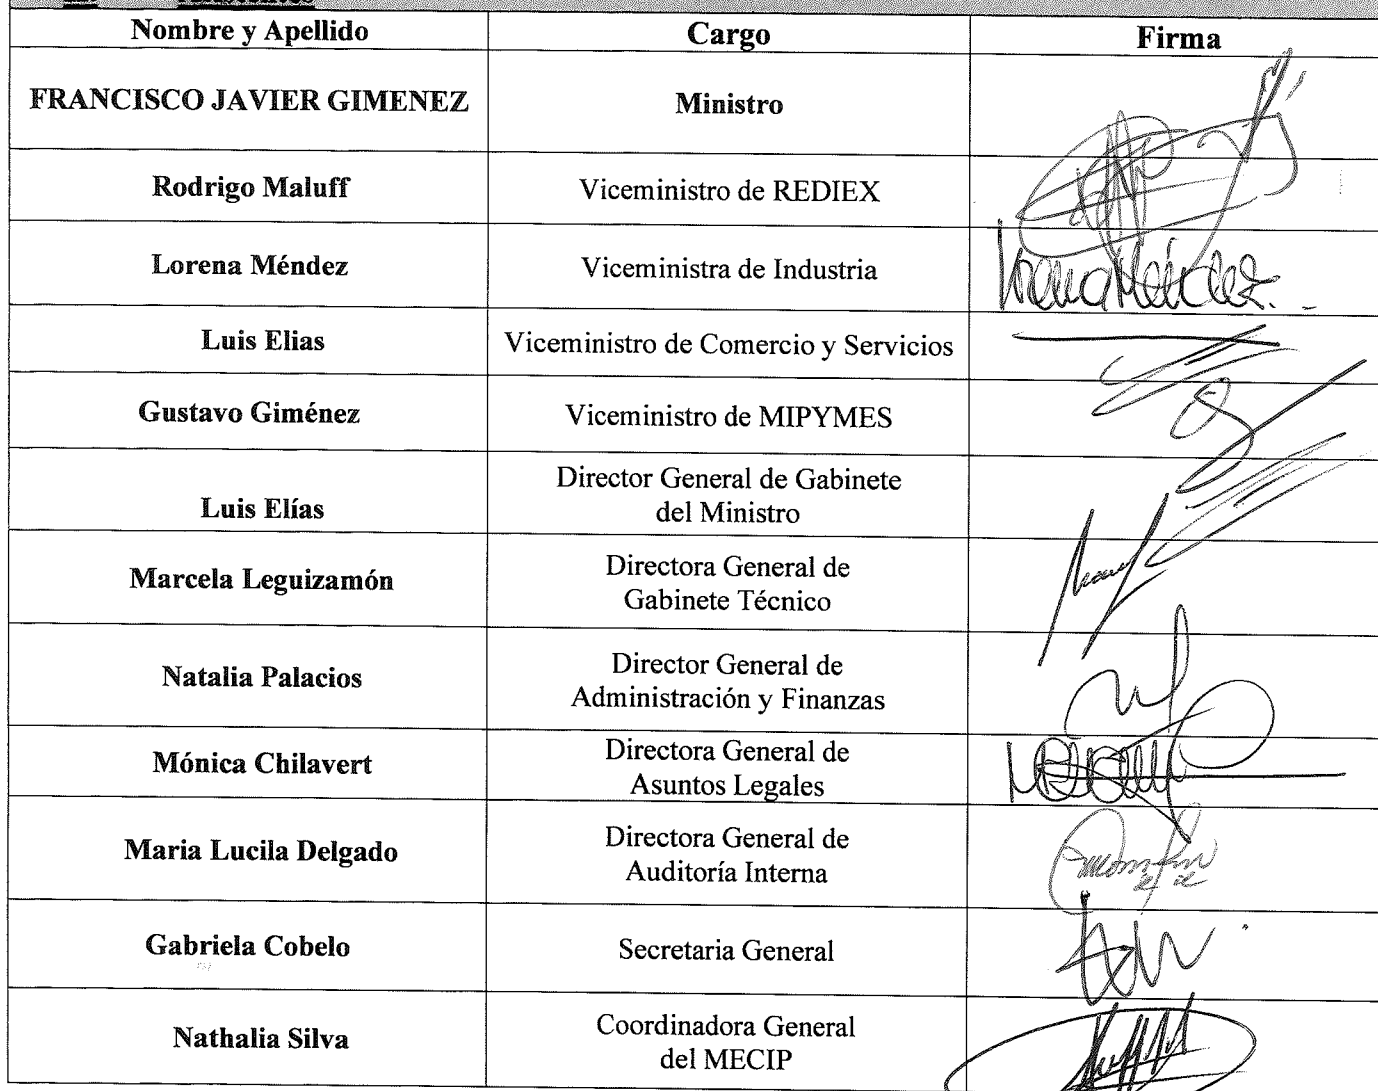 Nombre y Apellido Cargo Firma
FRANCISCO JAVIER GIMENEZ Ministro
Rodrigo Maluff Viceministro de REDIEX
Lorena Méndez Viceministra de Industria Lorena Méndez.
Luis Elias Viceministro de Comercio y Servicios
Gustavo Giménez Viceministro de MIPYMES
Luis Elías Director General de Gabinete
del Ministro
Marcela Leguizamón Directora General de
Gabinete Técnico
Natalia Palacios Director General de
Administración y Finanzas
Mónica Chilavert Directora General de
Asuntos Legales
Maria Lucila Delgado Directora General de
Auditoría Interna
Gabriela Cobelo Secretaria General
Nathalia Silva Coordinadora General
del MECIP